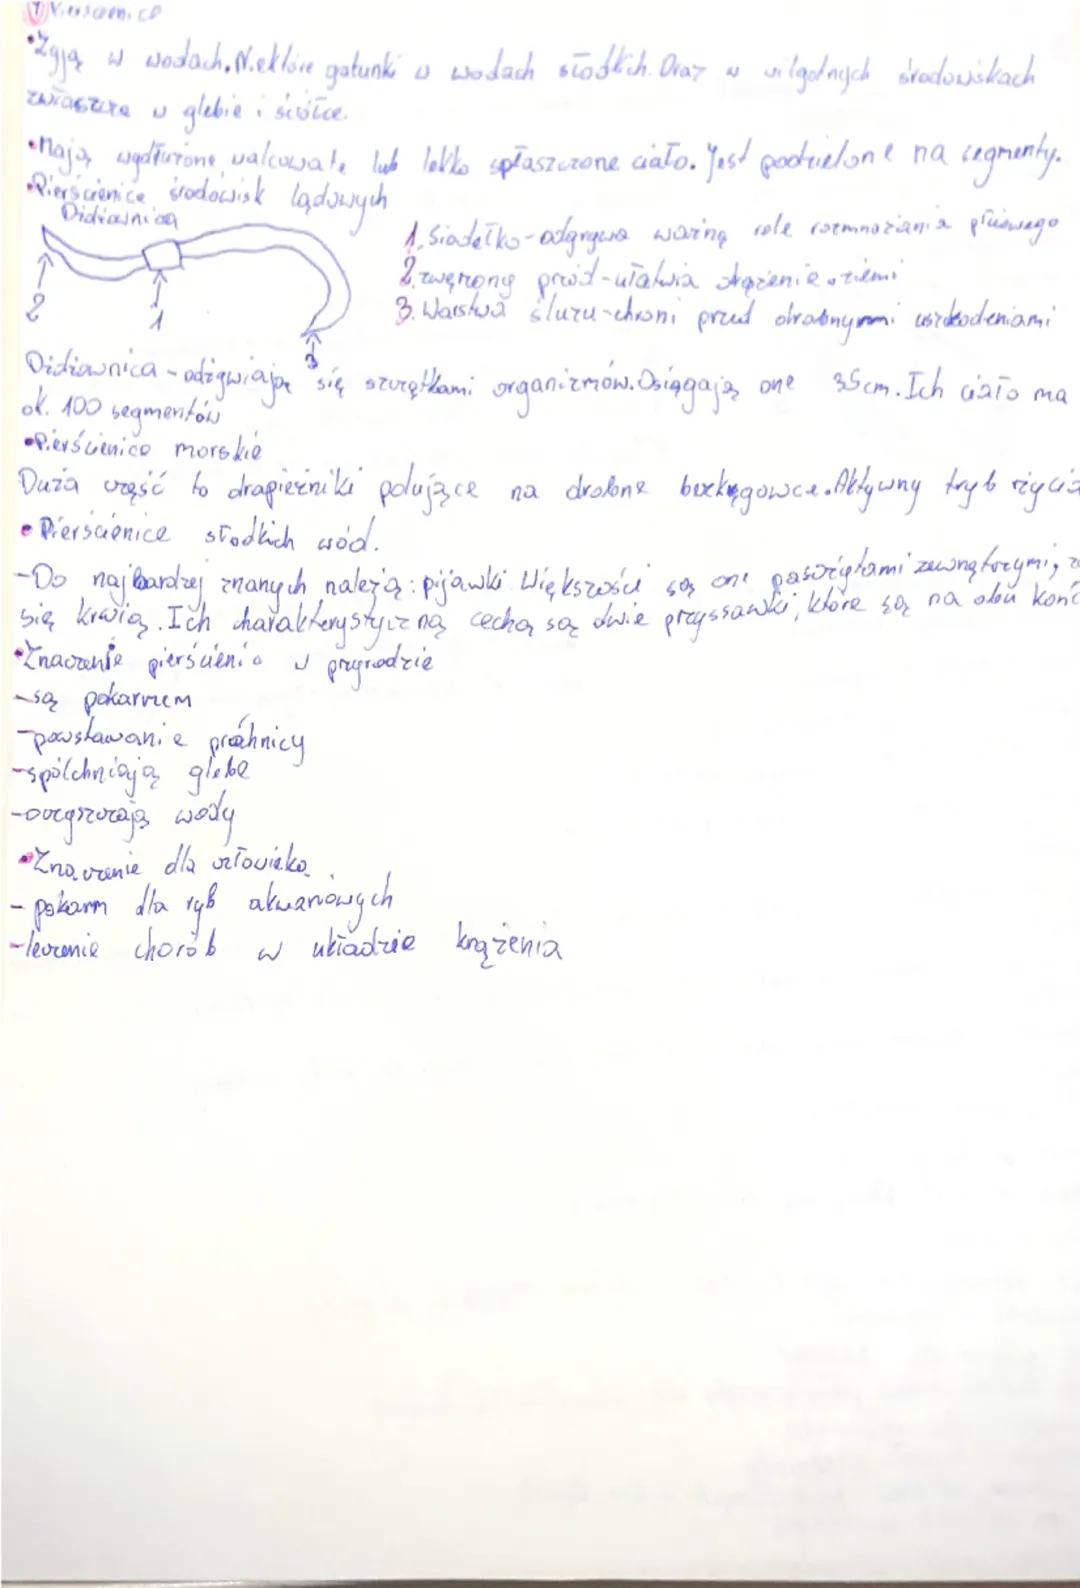 Pierścienice
•Żyją w wodach. Niektóre gatunki w wodach słodkich. Oraz w wilgotnych środowiskach
zwłaszcza w glebie i ściółce.
•Mają wydłużone walcowate lub lekko spłaszczone ciało. Jest podzielone na segmenty.
•Pierścienice środowisk lądowych
Dżdżownica
1. Siodełko-odgrywa ważną role rozmnażania płciowego
2. zwężony przód-ułatwia drążenie ziemi
3. Warstwa śluzu-chroni przed drobnymi uszkodeniami
2
1
3
Dżdżownica-odżywiają się szczątkami organizmów. Osiągają one 35cm. Ich ciało ma
ok. 100 segmentów
•Pierścienice morskie
Duża część to drapieżniki polujące na drobne bezkręgowce. Aktywny tryb życia
•Pierścienice słodkich wód.
-Do najbardzej znanych należą: pijawki. Większości są one pasożytami zewnętrzymi, ż
się krwią. Ich charakterystyczną cechą są dwie przyssawki, które są na obu końc
•Znaczenie pierścienic w przyrodzie
-są pokarmem
-powstawanie próchnicy
-spólchniają glebe
-oczyszczają wody
•Znaczenie dla człowieka
-pokarm dla ryb akwariowych
-leczenie chorób w układzie krążenia